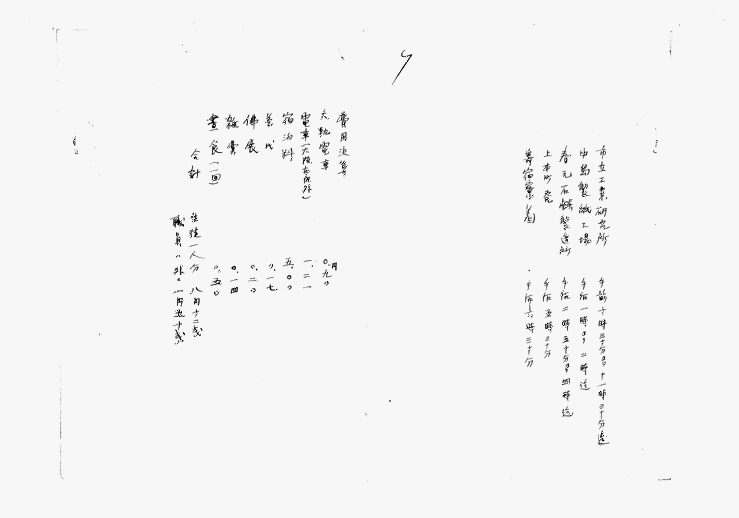 市立工業研究所　午前十時三十分ヨリ十一時三十分迄
中島製紙工場　午后一時ヨリ二時迄
春元石鹸製造所　午后二時五十分ヨリ四時迄
上本町発　午后五時三十分
寄宿寮着　午后六時三十分
費用決算
大軌電車　〇.九〇
電車（大阪市内外）　一.二一
宿泊料　五.〇〇
茶代　〇.一七
佛展　〇.二〇
雑費　〇.一四
昼食（一回）　〇.五〇
合計
生徒一人分　八円十二銭
職員